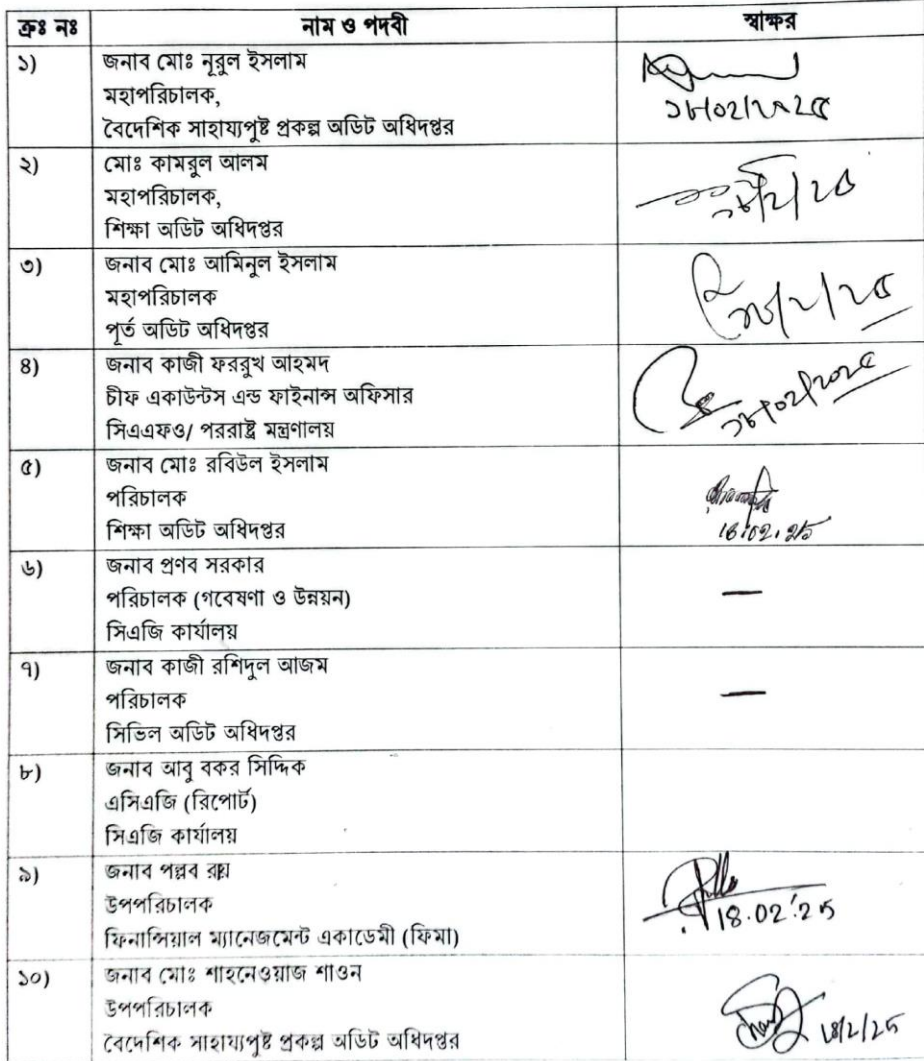 ক্রঃ নঃ নাম ও পদবী স্বাক্ষর
১) জনাব মোঃ নূরুল ইসলাম
মহাপরিচালক,
বৈদেশিক সাহায্যপুষ্ট প্রকল্প অডিট অধিদপ্তর
১৮/০২/২০২৫
২) মোঃ কামরুল আলম
মহাপরিচালক,
শিক্ষা অডিট অধিদপ্তর
১৮/২/২৫
৩) জনাব মোঃ আমিনুল ইসলাম
মহাপরিচালক
পূর্ত অডিট অধিদপ্তর
১৮/২/২৫
৪) জনাব কাজী ফররুখ আহমদ
চীফ একাউন্টস এন্ড ফাইনান্স অফিসার
সিএএফও/ পররাষ্ট্র মন্ত্রণালয়
১৮/০২/২০২৫
৫) জনাব মোঃ রবিউল ইসলাম
পরিচালক
শিক্ষা অডিট অধিদপ্তর
18.02.25
৬) জনাব প্রণব সরকার
পরিচালক (গবেষণা ও উন্নয়ন)
সিএজি কার্যালয়
—
৭) জনাব কাজী রশিদুল আজম
পরিচালক
সিভিল অডিট অধিদপ্তর
—
৮) জনাব আবু বকর সিদ্দিক
এসিএজি (রিপোর্ট)
সিএজি কার্যালয়
৯) জনাব পল্লব রায়
উপপরিচালক
ফিনান্সিয়াল ম্যানেজমেন্ট একাডেমী (ফিমা)
18.02.'25
১০) জনাব মোঃ শাহনেওয়াজ শাওন
উপপরিচালক
বৈদেশিক সাহায্যপুষ্ট প্রকল্প অডিট অধিদপ্তর
18/2/25